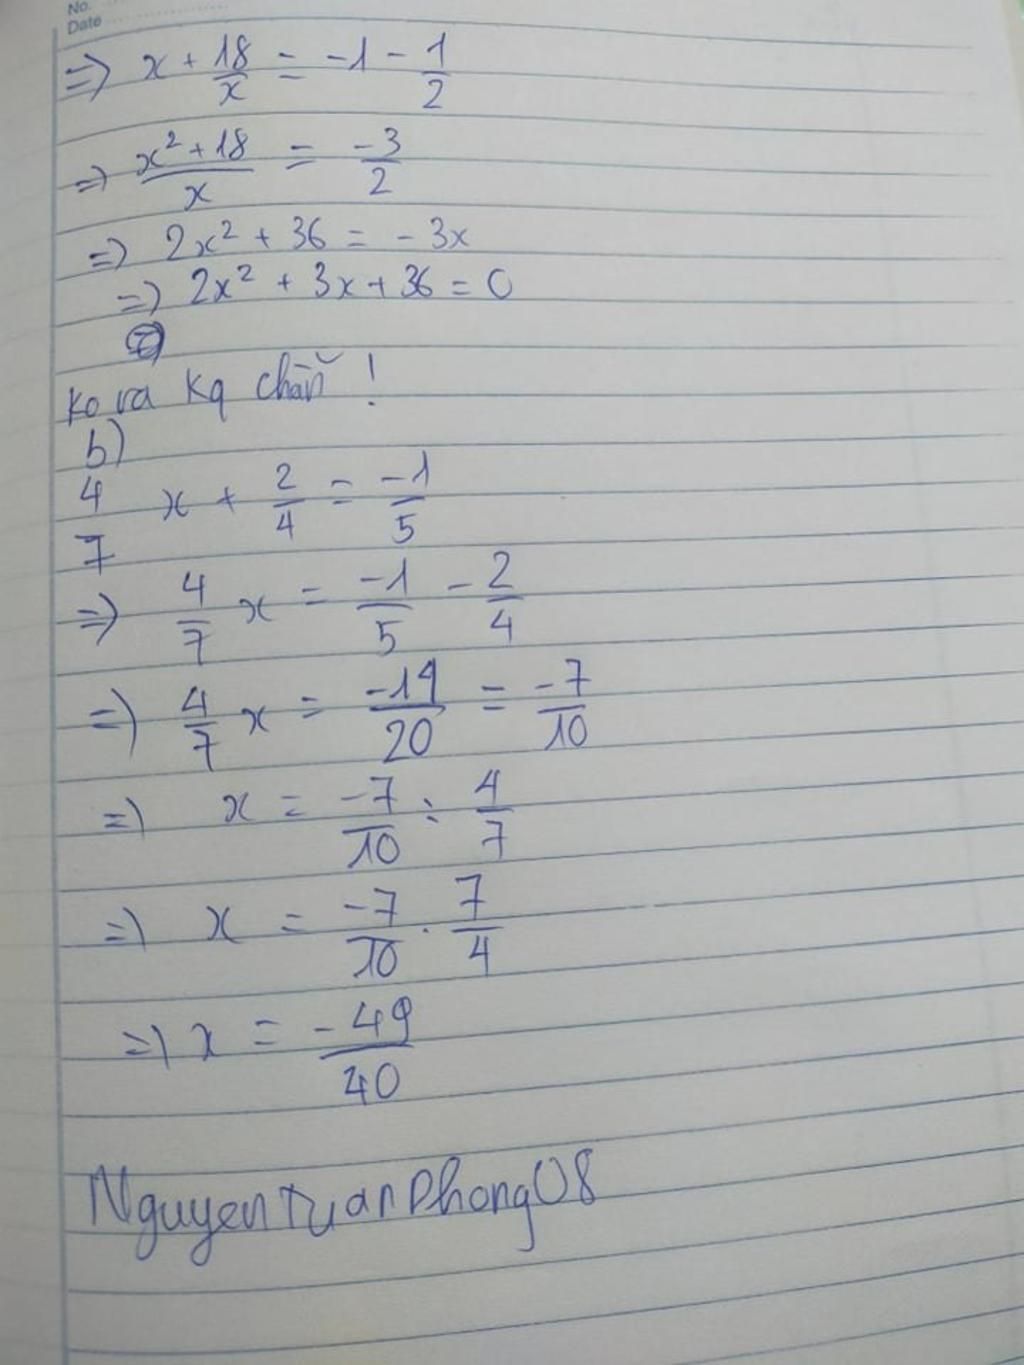 No.
Date
=> x + 18/x = -1 - 1/2
=> (x² + 18)/x = -3/2
=> 2x² + 36 = -3x
=> 2x² + 3x + 36 = 0
ko ra kq chẵn !
b)
4/7 x + 2/4 = -1/5
=> 4/7 x = -1/5 - 2/4
=> 4/7 x = -14/20 = -7/10
=> x = -7/10 : 4/7
=> x = -7/10 . 7/4
=> x = -49/40
NguyenTuanPhong08